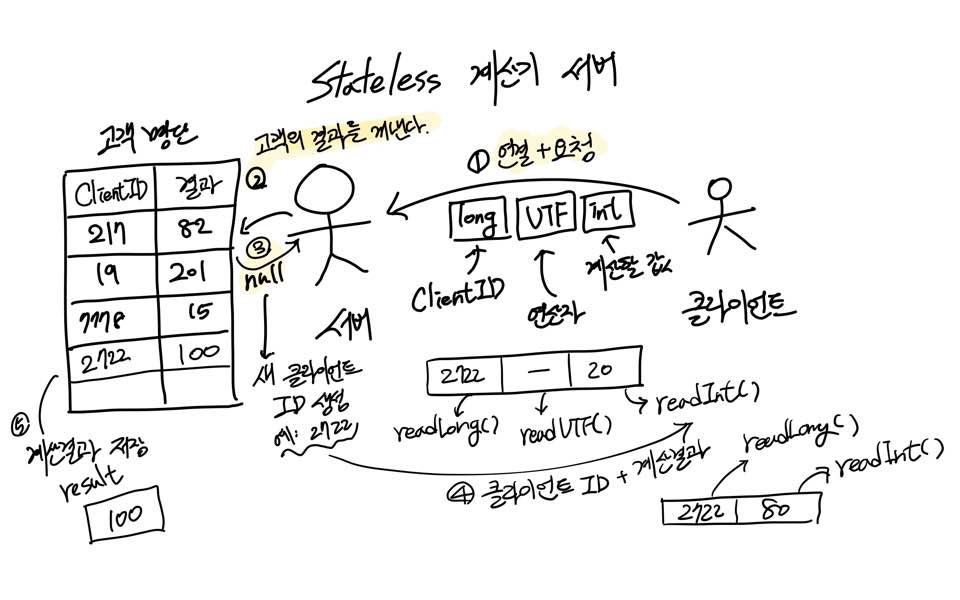 Stateless 계산기 서버
고객 명단
ClientID 결과
217 82
19 201
7778 15
2722 100
② 고객의 결과를 꺼낸다.
③
null
새 클라이언트
ID 생성
예: 2722
서버
① 연결 + 요청
long UTF int
ClientID
연산자
계산할 값
클라이언트
2722 － 20
readLong()
readUTF()
readInt()
④ 클라이언트 ID + 계산결과
readLong()
readInt()
2722 80
⑤
계산결과 저장
result
100